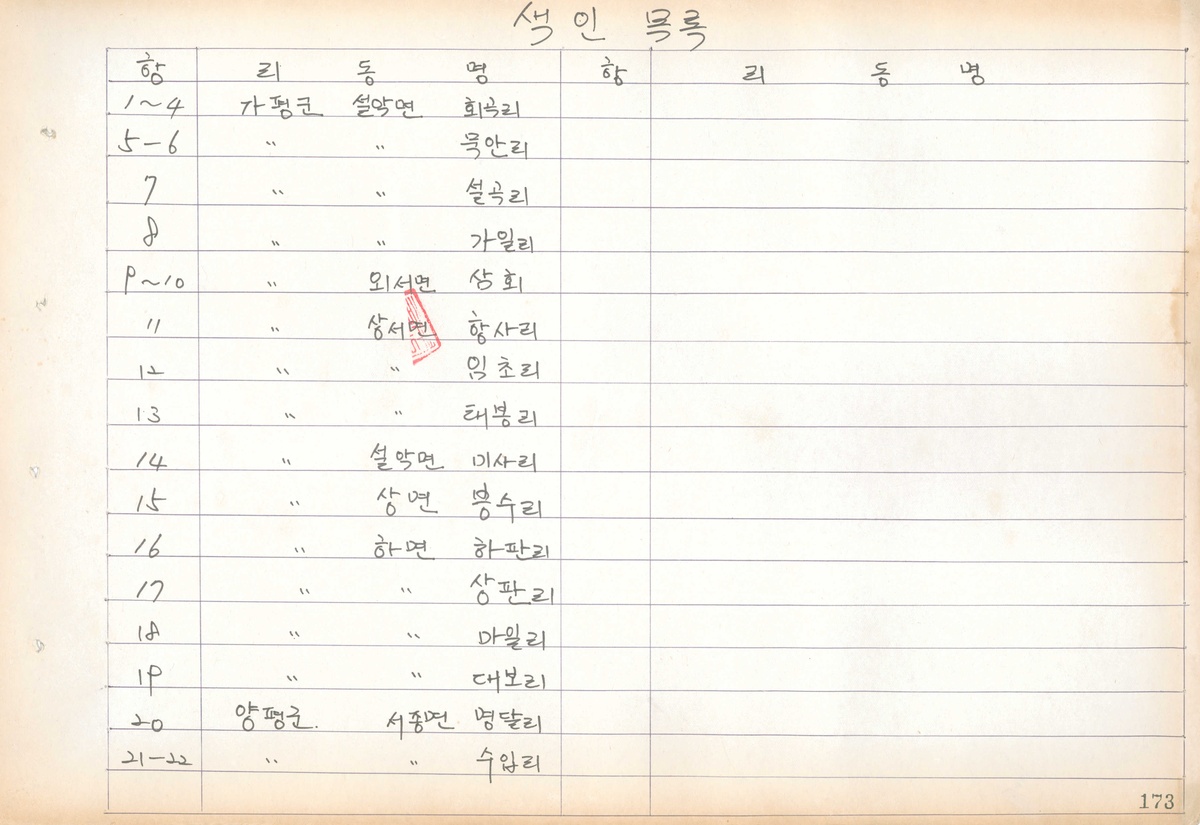 색인 목록
항 리 동 명 항 리 동 명
1~4 가평군 설악면 회곡리
5-6 〃 〃 묵안리
7 〃 〃 설곡리
8 〃 〃 가일리
9~10 〃 외서면 상회
11 〃 상서면 항사리
12 〃 〃 임초리
13 〃 〃 태봉리
14 〃 설악면 미사리
15 〃 상면 봉수리
16 〃 하면 하판리
17 〃 〃 상판리
18 〃 〃 마일리
19 〃 〃 대보리
20 양평군. 서종면 명달리
21-22 〃 〃 수입리
173